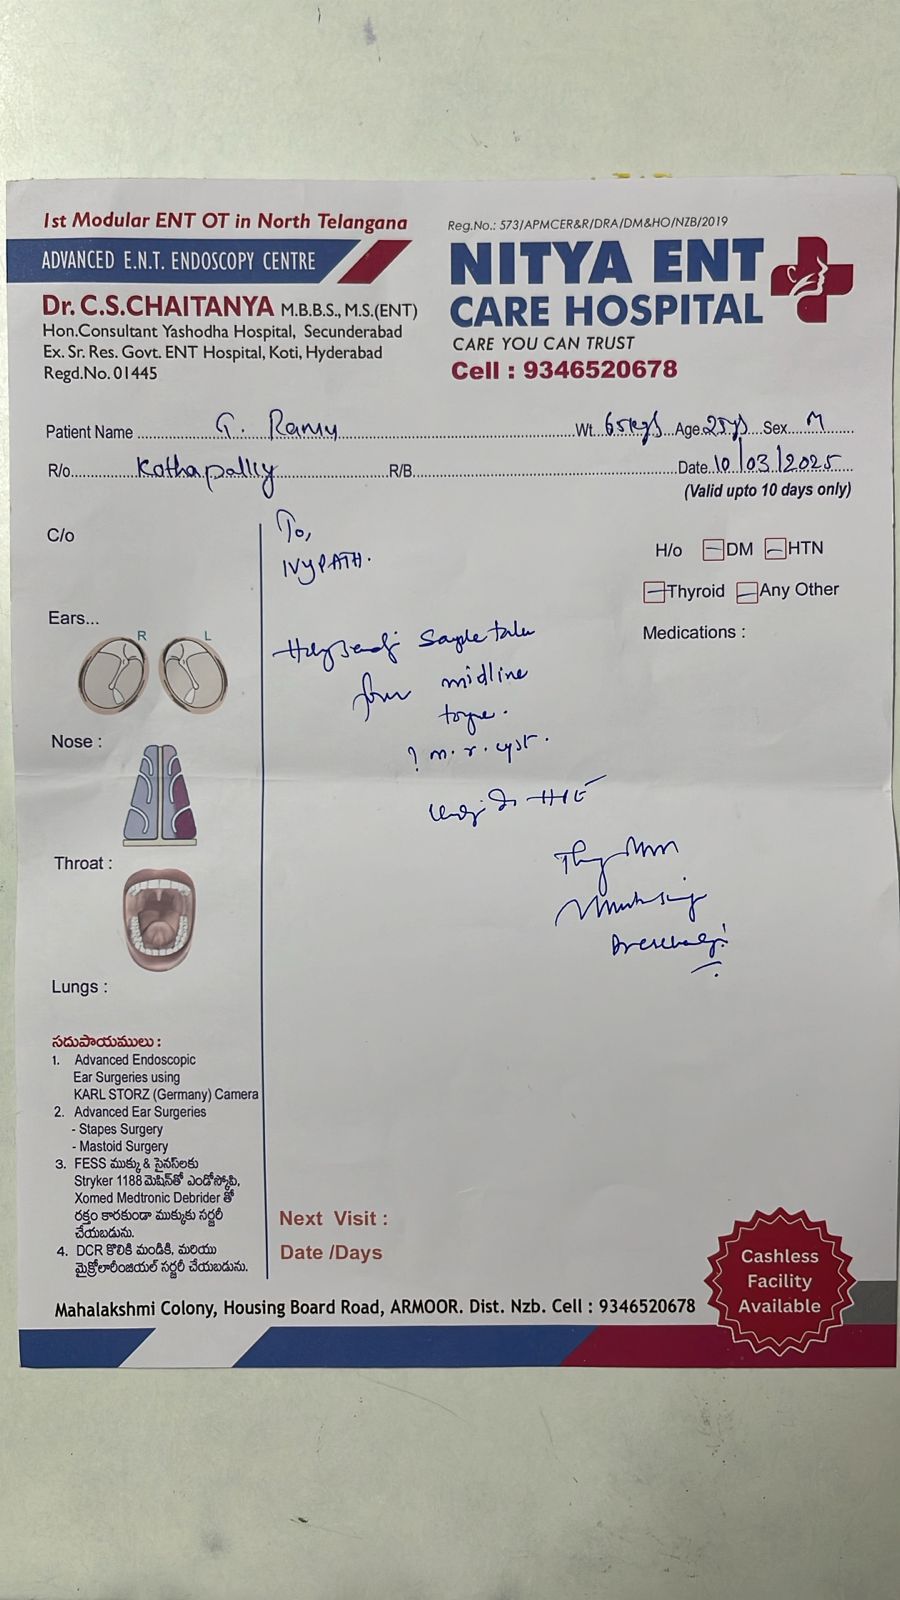 1st Modular ENT OT in North Telangana
ADVANCED E.N.T. ENDOSCOPY CENTRE
Dr. C.S.CHAITANYA M.B.B.S., M.S.(ENT)
Hon.Consultant Yashodha Hospital, Secunderabad
Ex. Sr. Res. Govt. ENT Hospital, Koti, Hyderabad
Regd.No. 01445
Reg.No.: 573/APMCER&R/DRA/DM&HO/NZB/2019
NITYA ENT
CARE HOSPITAL
CARE YOU CAN TRUST
Cell : 9346520678
Patient Name G. Ramu Wt. 65kgs Age 25ys Sex M
R/o Kothapally R/B Date 10/03/2025
(Valid upto 10 days only)
C/o
To,
IVYPATH.
H/o DM HTN
Thyroid Any Other
Medications :
Ears...
R L
Sample
midline
? m. r. cyst.
HPE
Nose :
Throat :
Lungs :
సదుపాయములు :
1. Advanced Endoscopic
Ear Surgeries using
KARL STORZ (Germany) Camera
2. Advanced Ear Surgeries
- Stapes Surgery
- Mastoid Surgery
3. FESS ముక్కు & సైనస్‌లకు
Stryker 1188 మెషిన్‌తో ఎండోస్కోపి,
Xomed Medtronic Debrider తో
రక్తం కారకుండా ముక్కుకు సర్జరీ
చేయబడును.
4. DCR కొలికి మండికి, మరియు
మైక్రోలారింజియల్ సర్జరీ చేయబడును.
Next Visit :
Date /Days
Cashless
Facility
Available
Mahalakshmi Colony, Housing Board Road, ARMOOR. Dist. Nzb. Cell : 9346520678